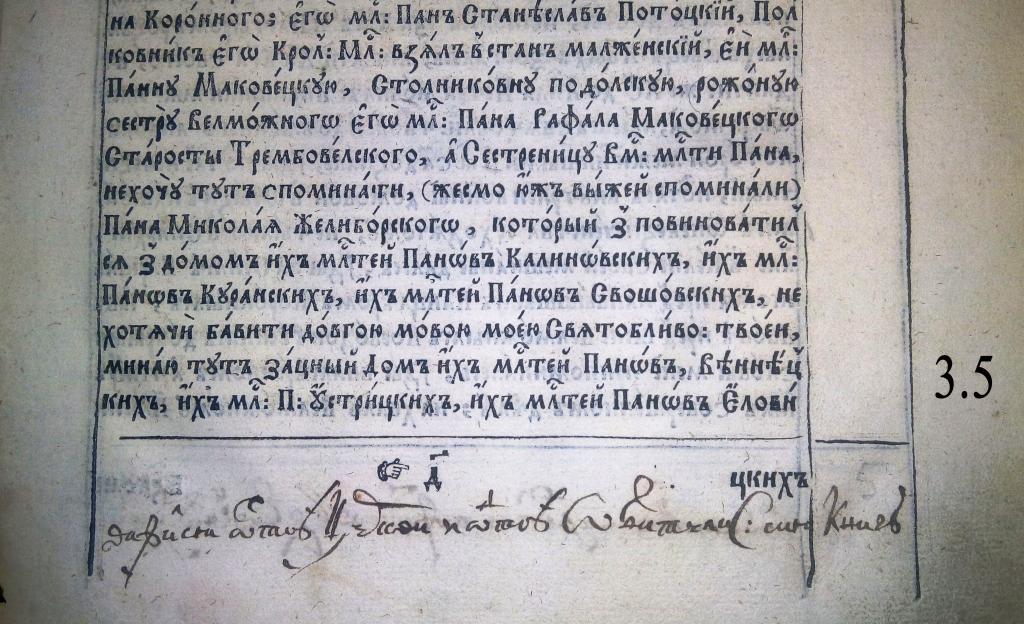 на Коро́нного; є҆гѡ̀ мл҃: Панъ Станѣсла́въ Пото́цкїй, Пол
ко́вникъ є҆гѡ̀ Крол҃: Мл҃: взѧ́лъ в̾ стан̾ малже́нскїй, є҆и́ мл҃:
Па́нну Макове́цкую, Столнико́внꙋ подо́лскую, рожо́нꙋю
сестрꙋ̀ Велмо́жногѡ є҆гѡ̀ мл҃: Па́на Рафа́ла Макове́цкогѡ
Ста́росты Трембове́лского, а҆ Сестрени́цꙋ Вм҃: мл҃ти Па́на,
нехочꙋ̀ тꙋтъ спомина́ти, (жесмо ю҆́жъ вы́жей спомина́ли)
Па́на Микола́ѧ Желибо́рскогѡ, кото́рый з̾ повинова́тил
сѧ з̾ до́момъ и҆́хъ мл҃тей Пано́въ Калино́вскихъ, и҆́хъ мл҃:
Па́новъ Кꙋра́нскихъ, и҆́хъ мл҃тей Па́новъ Свошо́вскихъ, не
хотѧ́чи ба́вити до́вгою мо́вою мое́ю Свѧтобли́во: твое́и,
мина́ю тꙋтъ за́цный До́мъ и҆́хъ мл҃тей Пано́въ, Вѣннѣ́ц
кихъ, и҆́хъ мл҃: П: Ѹ҆стри́цкихъ, и҆́хъ мл҃тей Пано́въ Є҆лови́
☞ д҃
цкихъ
Києв
3.5